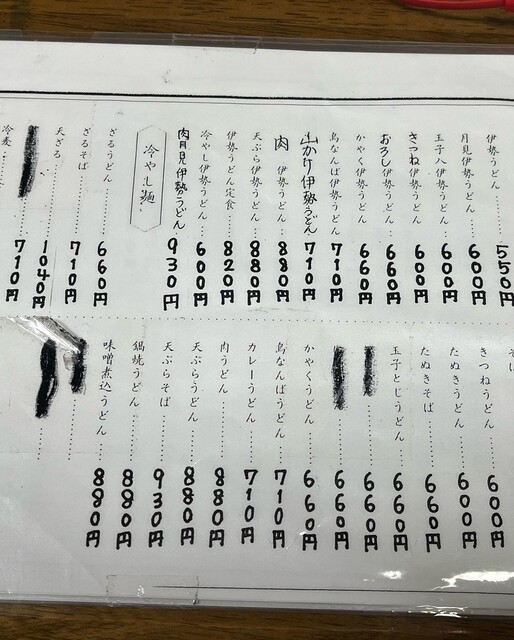 伊勢うどん 550円
月見伊勢うどん 600円
玉子入伊勢うどん 600円
きつね伊勢うどん 600円
おろし伊勢うどん 660円
かやく伊勢うどん 660円
鳥なんば伊勢うどん 710円
山かけ伊勢うどん 710円
肉 伊勢うどん 880円
天ぷら伊勢うどん 880円
伊勢うどん定食 820円
冷やし伊勢うどん 600円
肉月見伊勢うどん 930円
冷やし麺
ざるうどん 660円
ざるそば 710円
天ざる 1040円
710円
冷麦
そば
きつねうどん 600円
たぬきうどん 600円
たぬきそば 660円
玉子とじうどん 660円
660円
660円
かやくうどん 660円
鳥なんばうどん 710円
カレーうどん 710円
肉うどん 880円
天ぷらうどん 880円
天ぷらそば 930円
鍋焼うどん 880円
味噌煮込うどん 880円